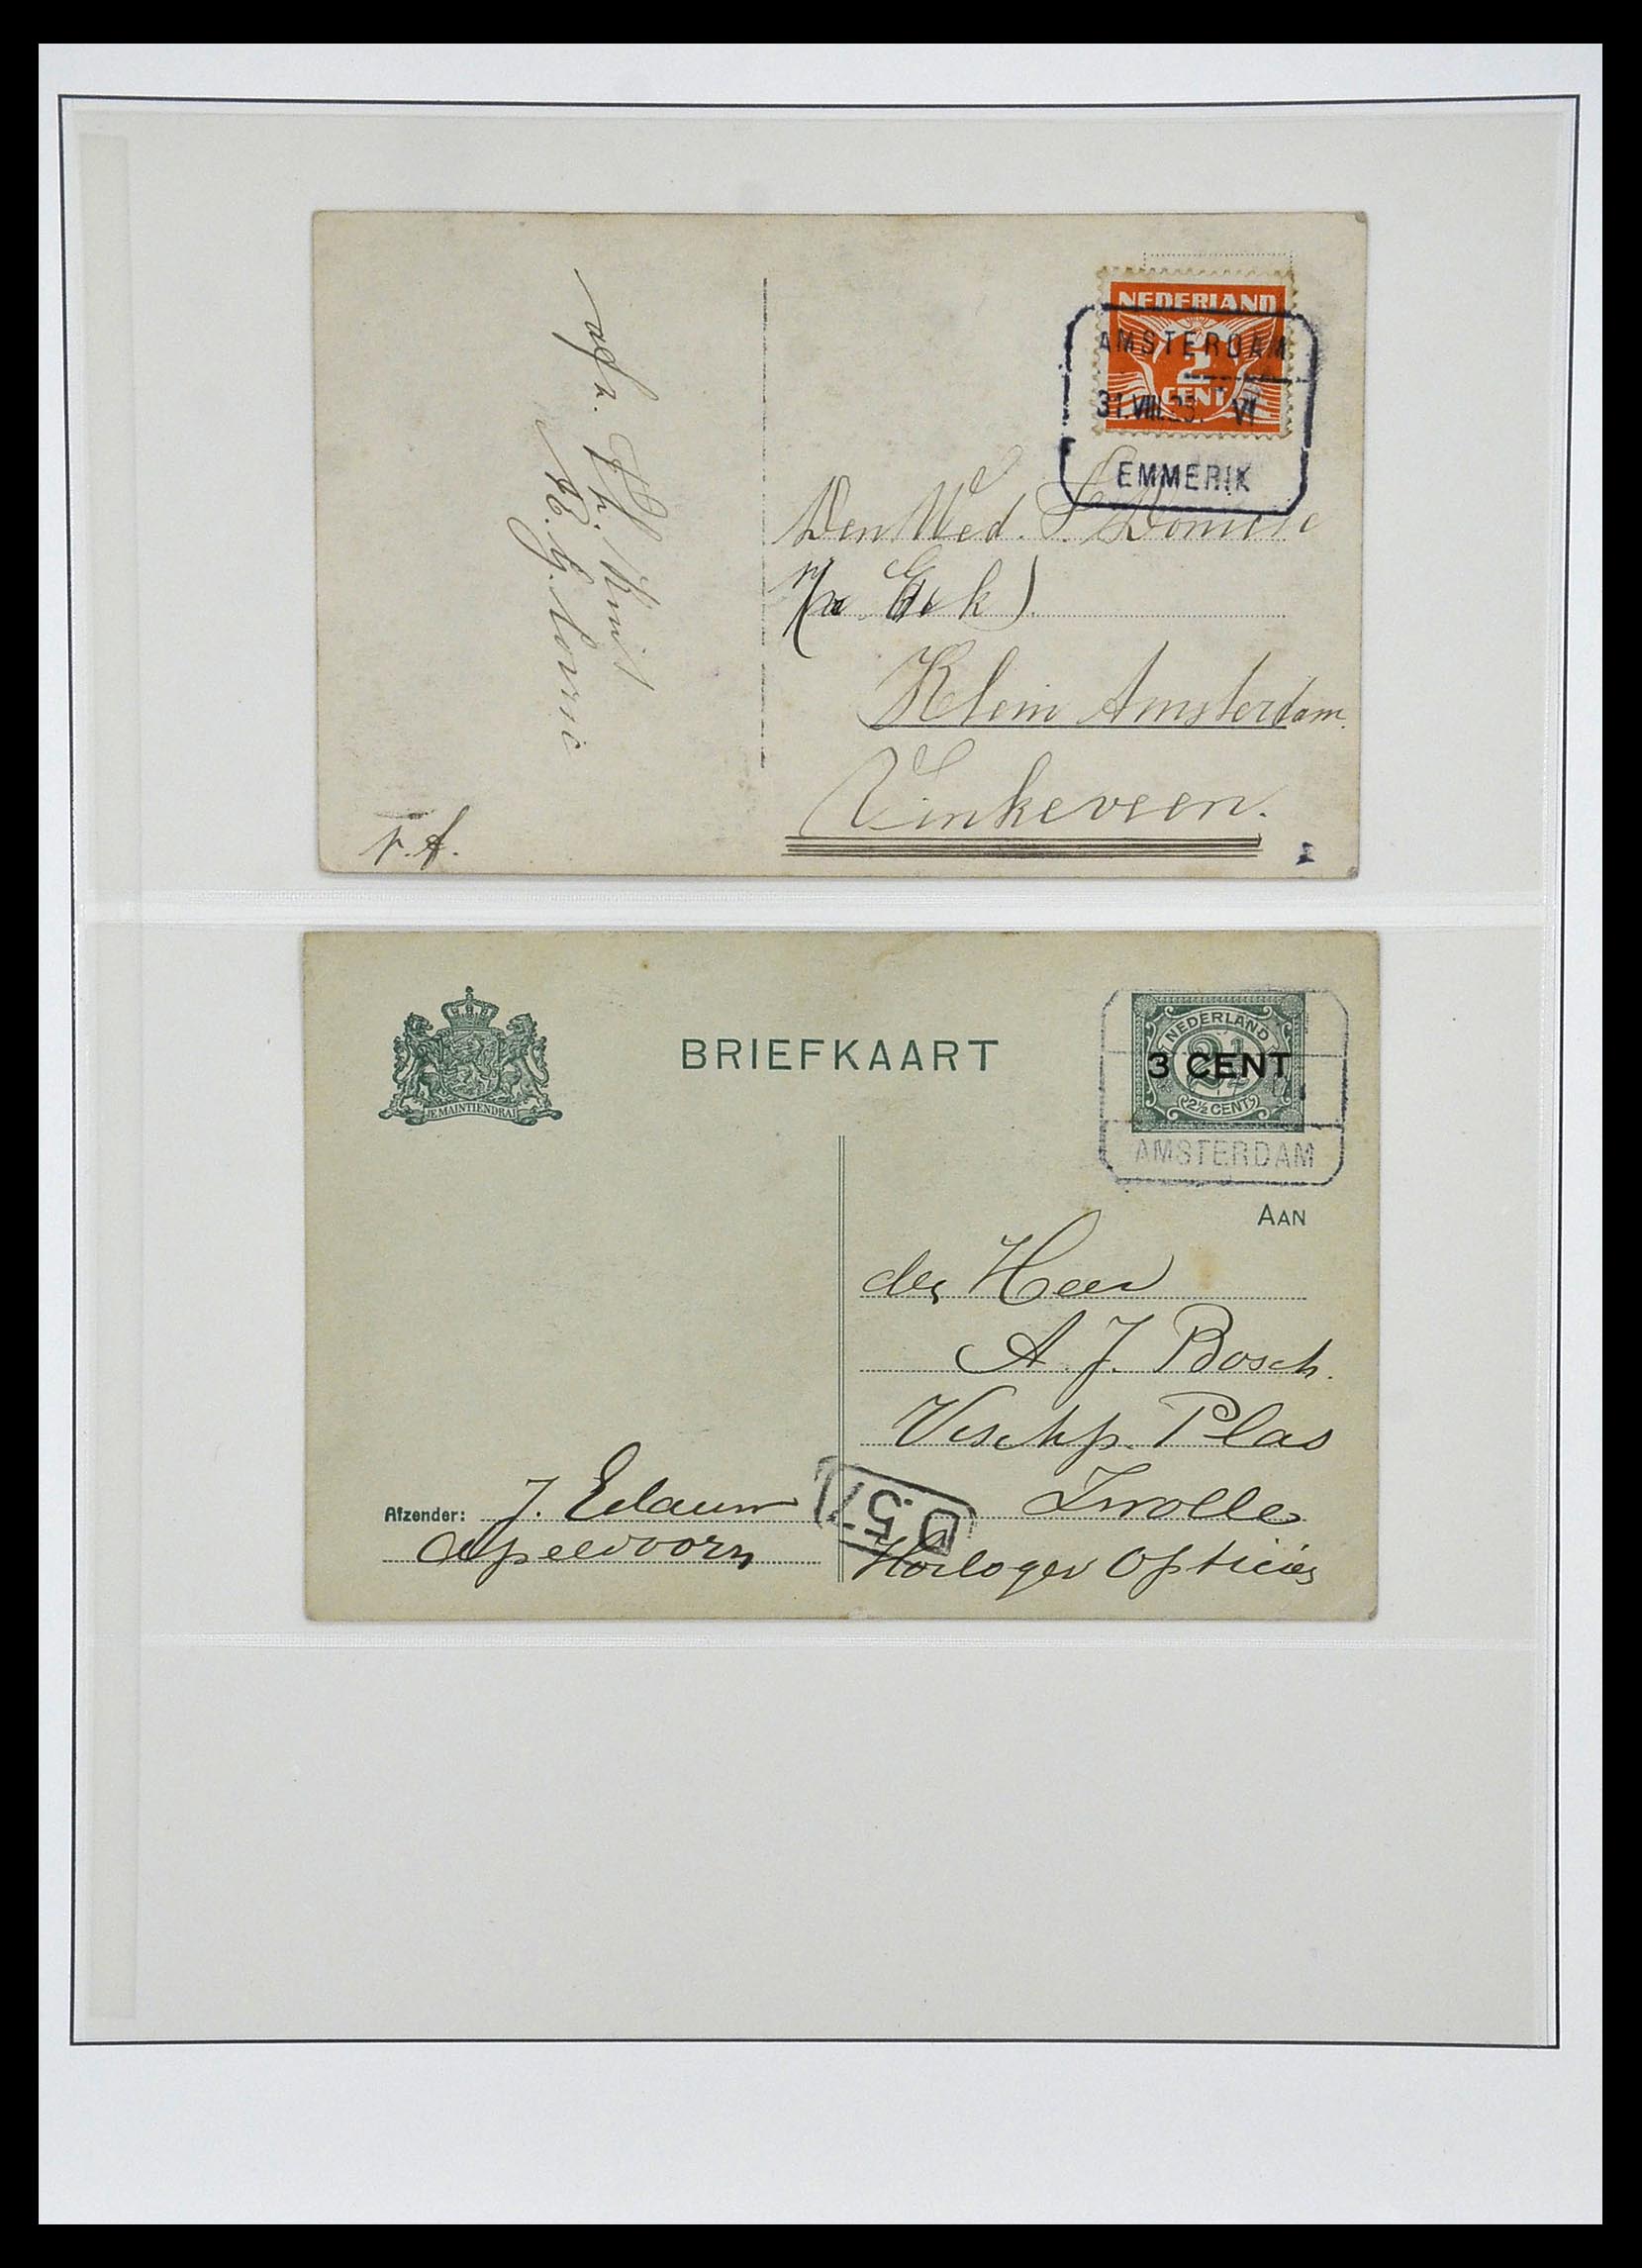 NEDERLAND
2
CENT
AMSTERDAM
31.VIII.25. VI
EMMERIK
afz. Ph.
Den Wed. S.
Klein Amsterdam.
Vinkeveen.
BRIEFKAART
JE MAINTIENDRAI
NEDERLAND
3 CENT
2½ CENT
AMSTERDAM
AAN
den Heer
A. J. Bosch.
Vischp. Plas
Zwolle
Horloger Opticien
Afzender: J.
Apeldoorn
D.57